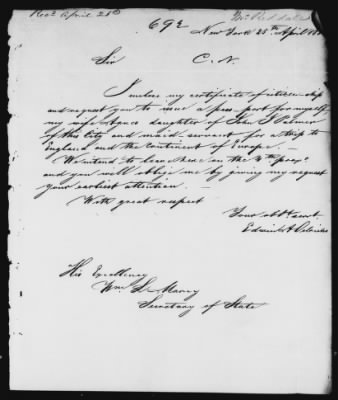 Recd April 28th
Mr. Reddall
692
New York 25th April
Sir C. N.
I inclose my certificate of citizenship
and request you to issue a pass-port for myself
my wife Agnes daughter of John J Palmer
of this City and maid servant for a trip to
England and the Continent of Europe. —
We intend to leave here on the 4th proxo
and you will oblige me by giving my request
your earliest attention. —
With great respect
Your obt servt
Edwin A
His Excellency
Wm. L. Marcy
Secretary of State